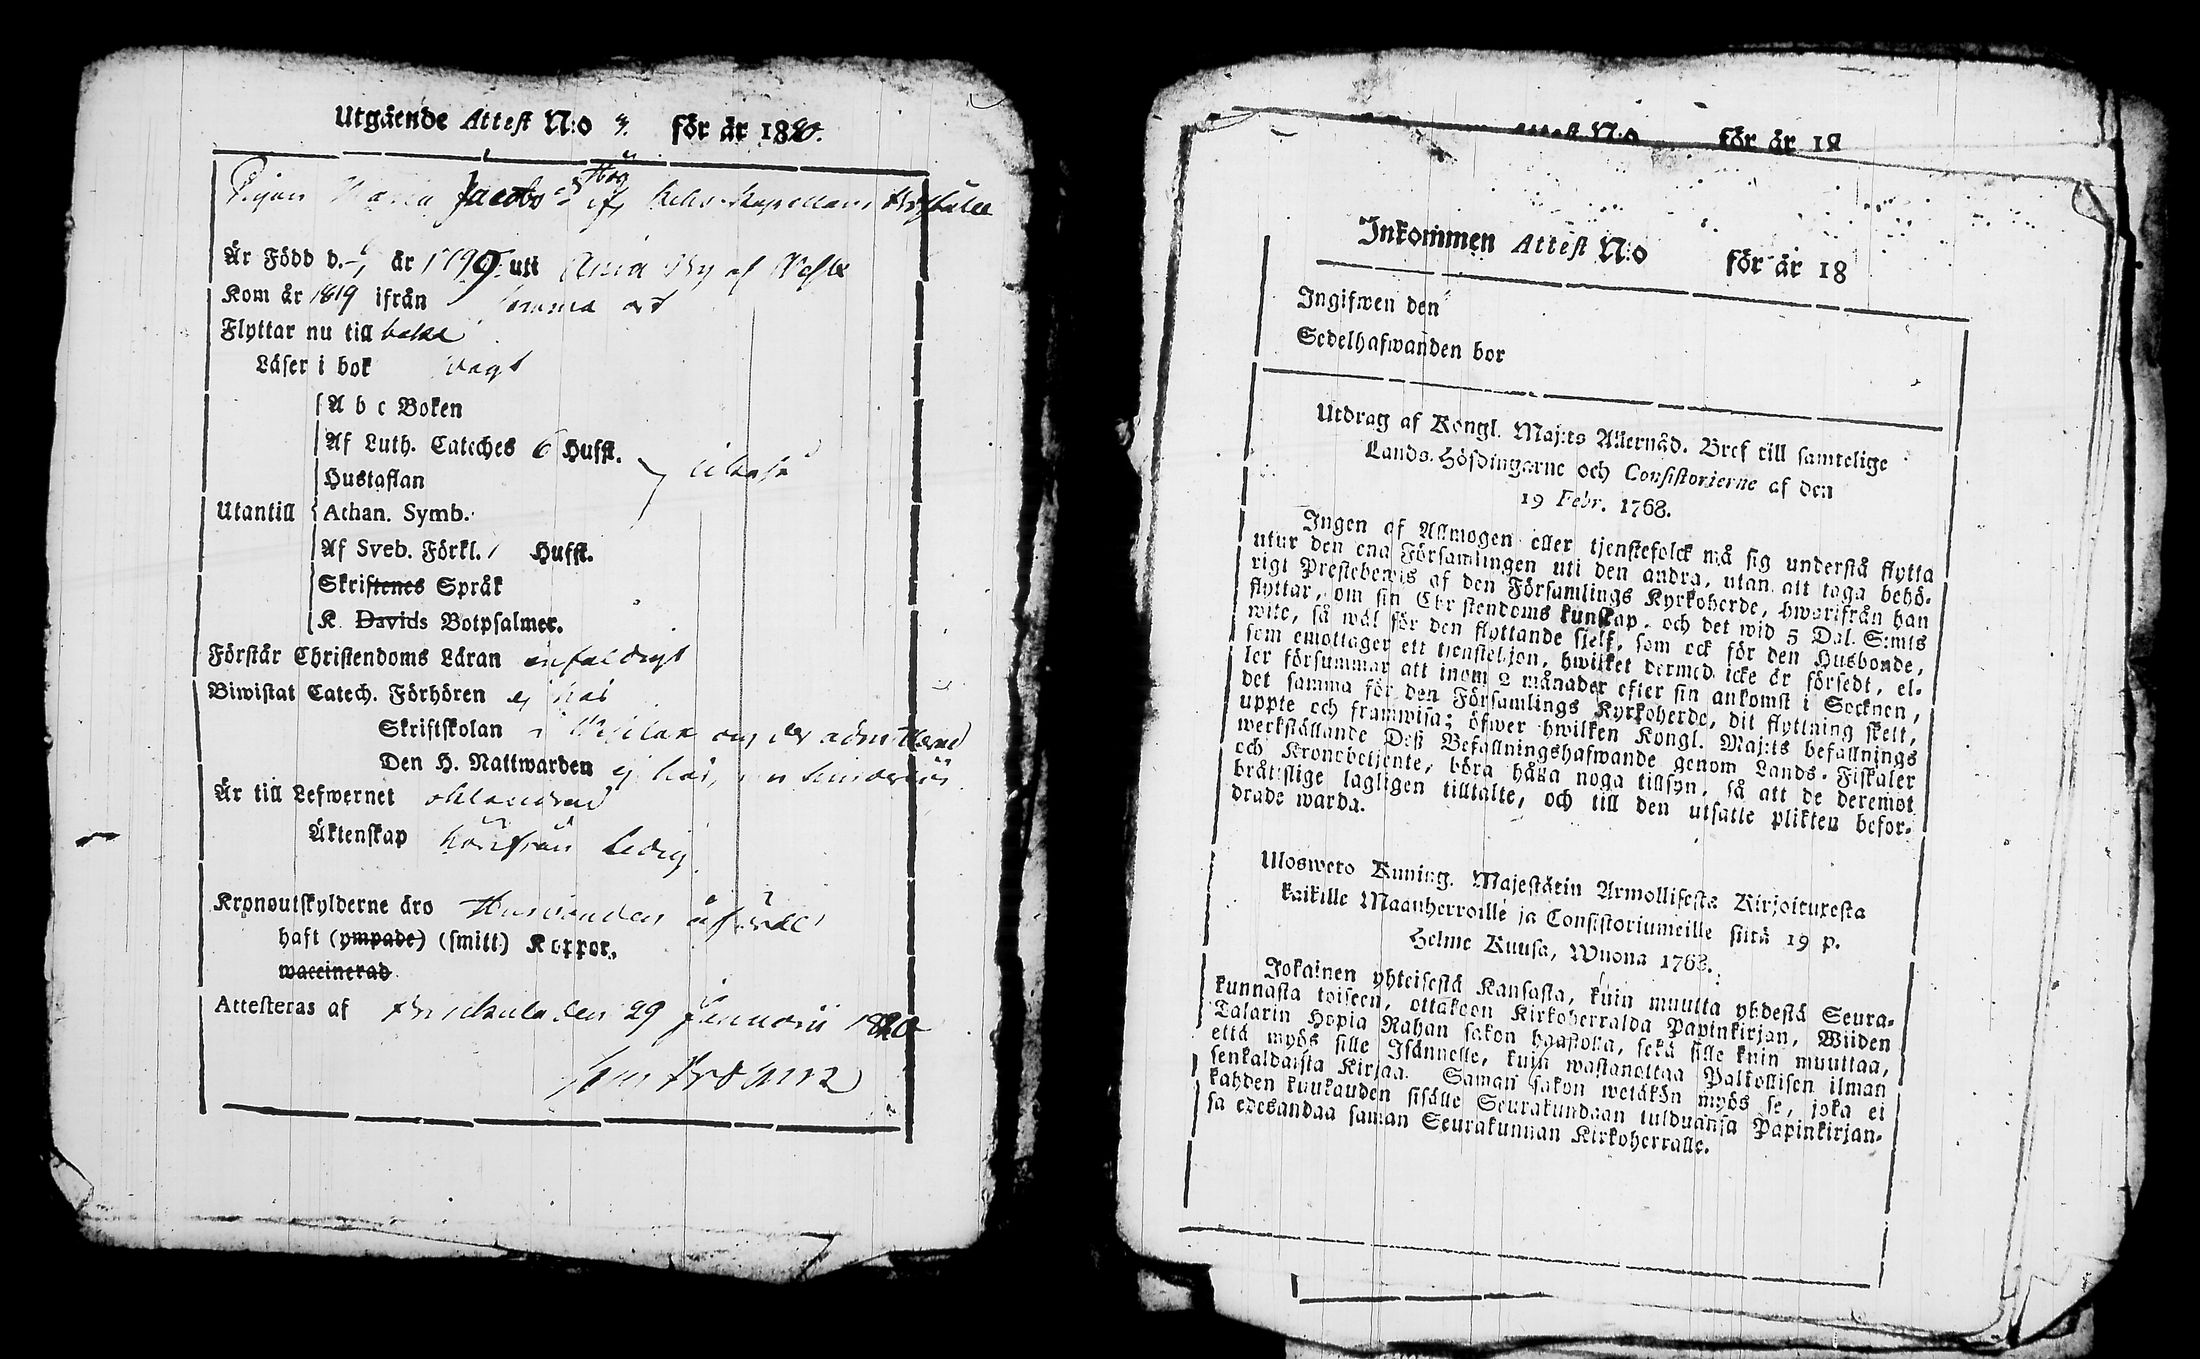 Utgående Attest N:o 3. för år 1820.
Pigan Maria Jacobsdr Hög
Är Född d. år 1799 uti By af
Kom år 1819 ifrån samma ort
Flyttar nu till baka
Läser i bok svagt
A b c Boken
Af Luth. Cateches 6 Hufst.
Hustaflan
Utantill Athan. Symb.
Af Sveb. Förkl. Hufst.
Skriftenes Språk
K. Davids Botpsalmer.
Förstår Christendoms Läran enfaldigt
Biwistat Catech. Förhören ej här
Skriftskolan
Den H. Nattwarden ej här,
Är till Lefwernet oklandrad
Äktenskap härifrån Ledig
Kronoutskylderne äro Husbonden
haft (ympade) (smitt) Koppor.
waccinerad
Attesteras af den 29 Januarii 1820
Attest N:o för år 18
Inkommen Attest N:o för år 18
Ingifwen den
Sedelhafwanden bor
Utdrag af Kongl. Maj:ts Allernåd. Bref till samtelige
Lands-Höfdingarne och Consistorierne af den
19 Febr. 1768.
Ingen af Allmogen eller tjenstefolck må sig understå flytta
utur den ena Församlingen uti den andra, utan att taga behö-
rigt Prestebewis af den Församlings Kyrkoherde, hwarifrån han
flyttar, om sin Christendoms kunskap, och det wid 5 Dal. S:mts
wite, så wäl för den flyttande sjelf, som ock för den Husbonde,
som emottager ett tjenstehjon, hwilket dermed icke är försedt, el-
ler försummar att inom 2 månader efter sin ankomst i Socknen,
det samma för den Församlings Kyrkoherde, dit flyttning skett,
uppte och framwisa; öfwer hwilken Kongl. Maj:ts befallnings
werkställande Deß Befallningshafwande genom Lands-Fiskaler
och Kronobetjente, böra hålla noga tillsyn, så att de deremot
bråtslige lagligen tilltalte, och till den utsatte plikten befor-
drade warda.
Uloswero Kuning. Majestätin Armollisesta Kirjoituxesta
kaikille Maanherroille ja Consistoriumeille siitä 19 p.
Helme Kuusa, Wuona 1768.
Jokainen yhteisestä Kansasta, kuin muutta yhdestä Seura-
kunnasta toiseen, ottakoon Kirkoherralda Papinkirjan, Wiiden
Talarin Hopia Rahan sakon haastolla, sekä sille kuin muuttaa,
että myös sille Isännelle, kuin wastanottaa Palkollisen ilman
senkaldaista Kirjaa. Saman sakon wetäkön myös se, joka ei
kahden kuukauden sisälle Seurakundaan tulduansa Papinkirjan-
sa edesandaa saman Seurakunnan Kirkoherralle.